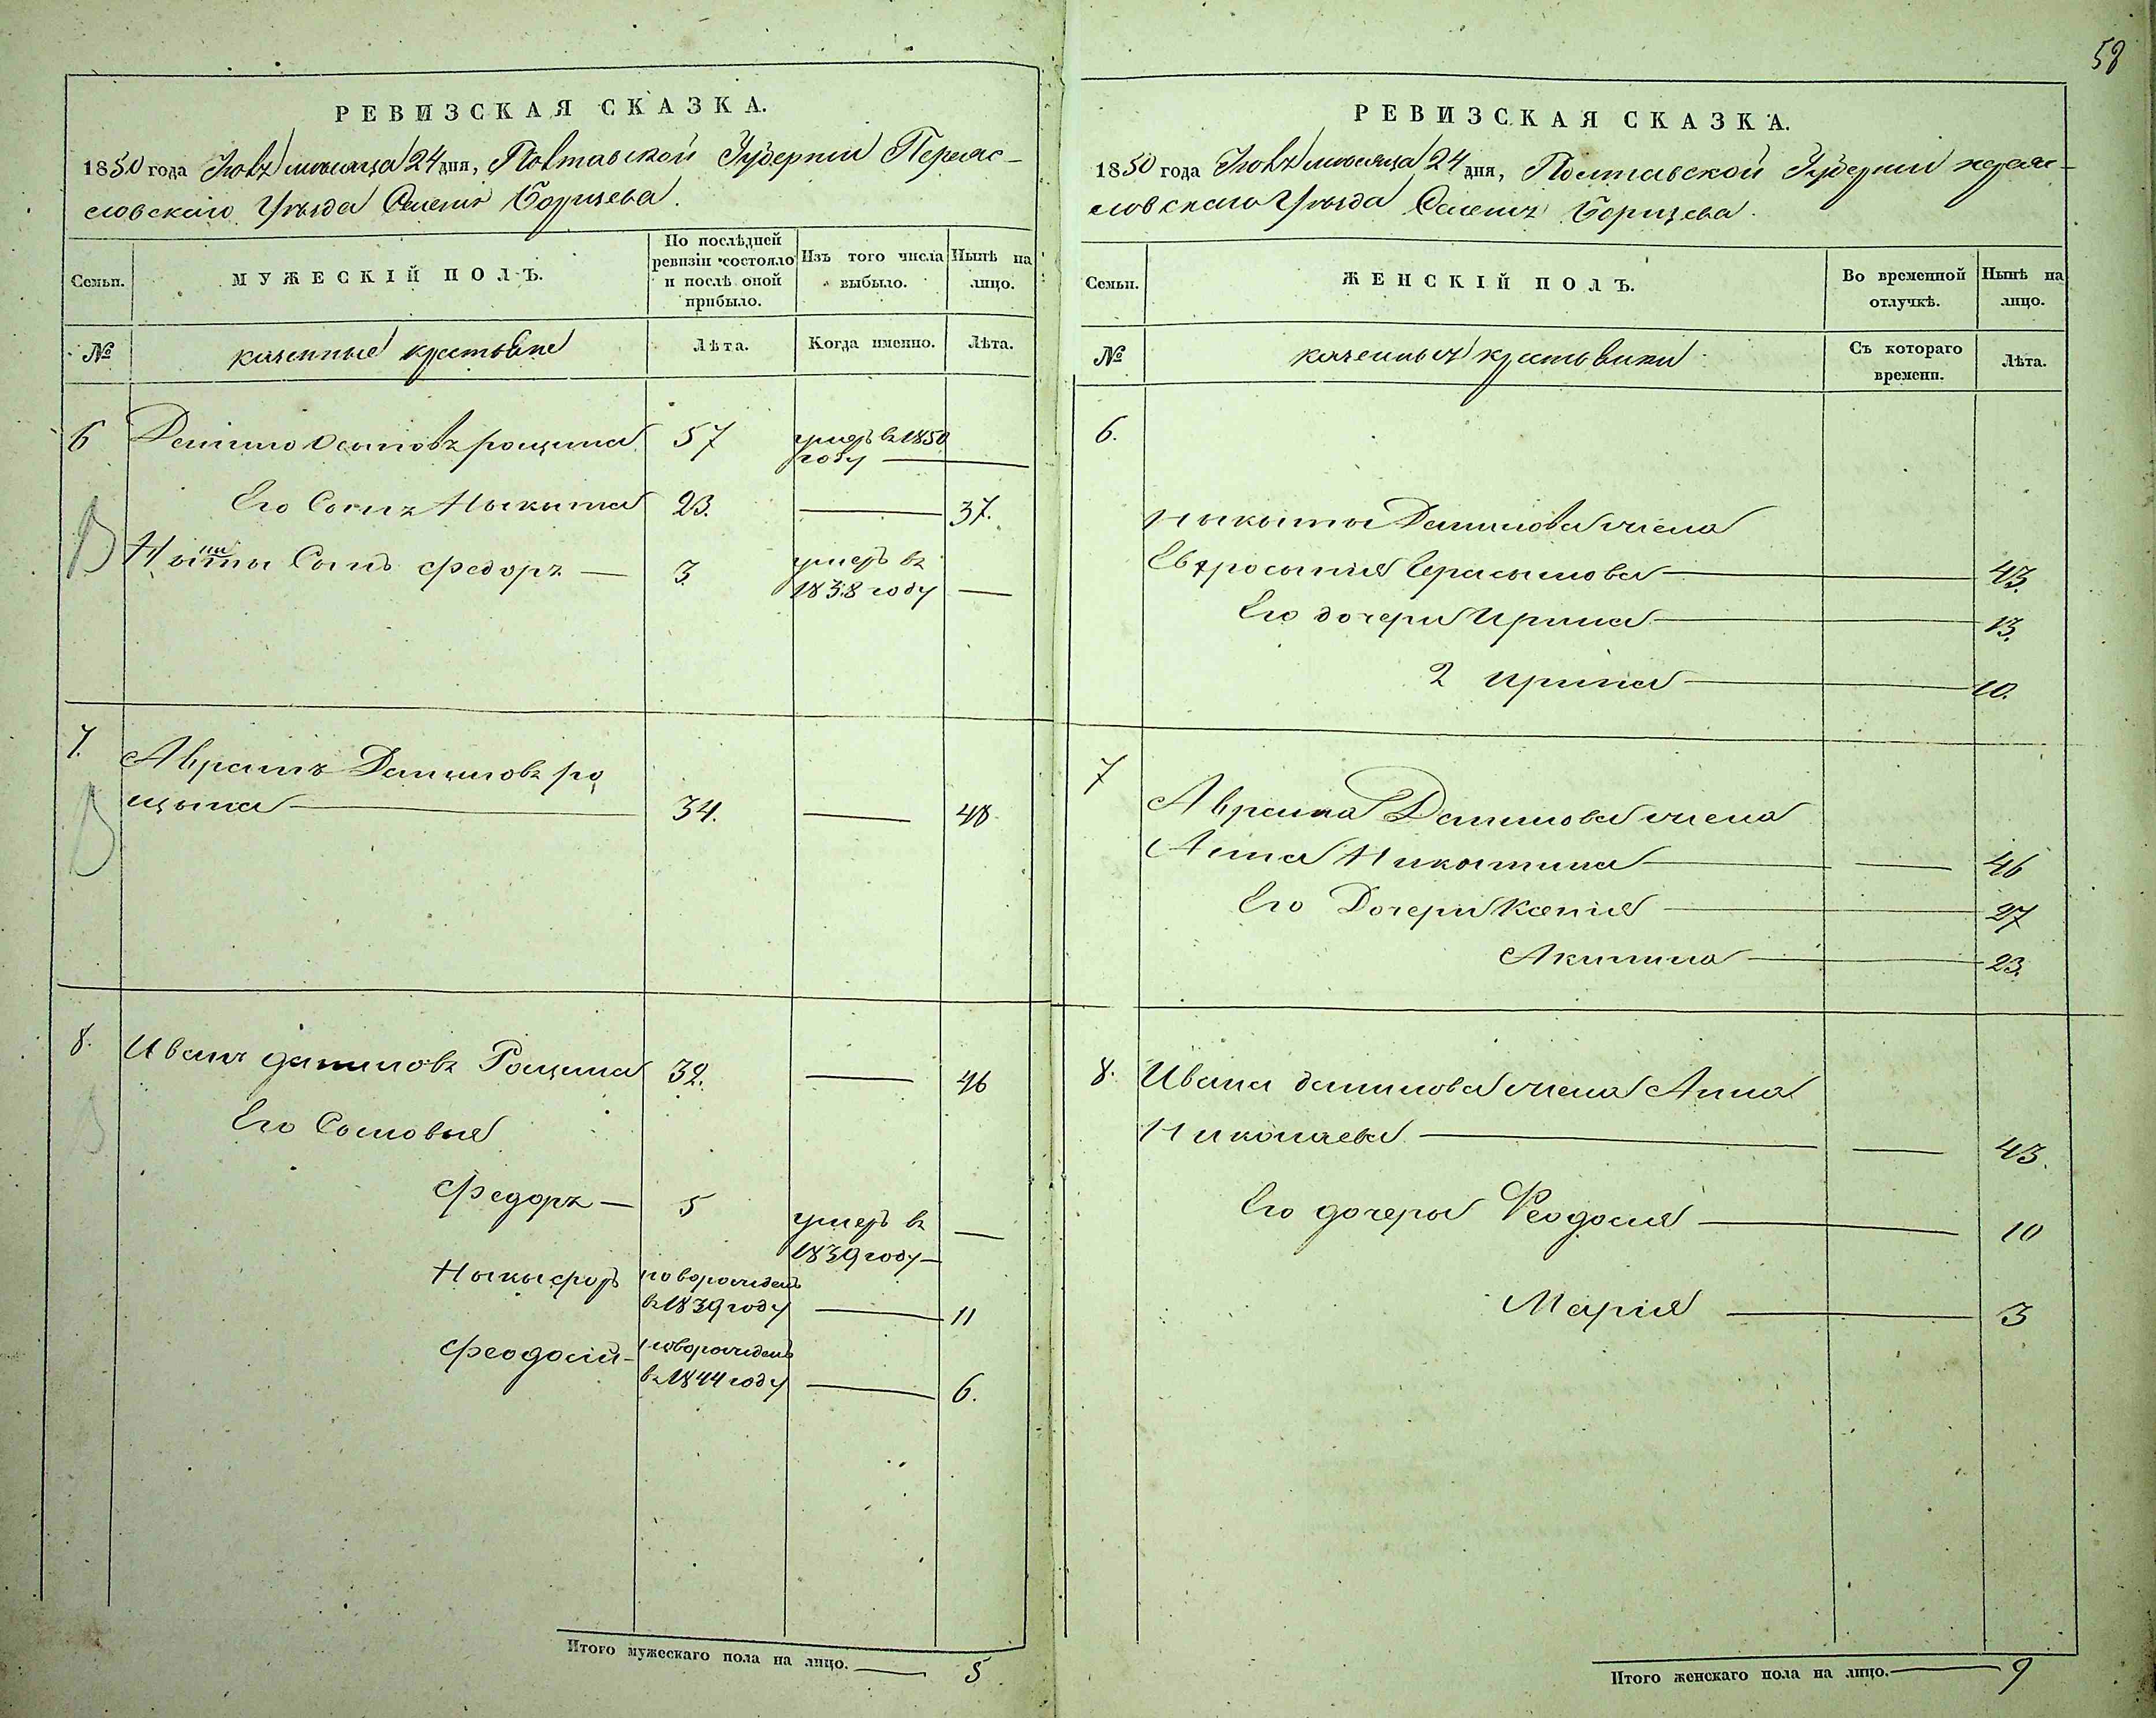 58
РЕВИЗСКАЯ СКАЗКА.
1850 года Іюля месяца 24 дня, Полтавской Губерніи Переяс-
словскаго Уѣзда Селенія Борщева.
Семьи.
МУЖЕСКІЙ ПОЛЪ.
По послѣдней ревизіи состояло и послѣ оной прибыло.
Изъ того числа выбыло.
Нынѣ на лицо.
№
казенные крестьяне
Лѣта.
Когда именно.
Лѣта.
6 Данило Осиповъ рощина 57 умеръ въ 1850 году —
Его Сынъ Ныкыта 23. — 37.
Ныкыты Сынъ Федоръ — 3 умеръ въ 1838 году —
7. Аврамъ Даниловъ ро
щына — 34. — 48
8. Иванъ даниловъ Рощина 32. — 46
Его Сыновья
Федоръ — 5 умеръ въ 1839 году —
Ныкыфоръ новорожденъ въ 1839 году — 11
Феодосій - новорожденъ въ 1844 году — 6.
Итого мужескаго пола на лицо. — 5
РЕВИЗСКАЯ СКАЗКА.
1850 года Іюля месяца 24 дня, Полтавской Губерніи переяс-
ловскаго Уѣзда Селенія Борщева.
Семьи.
ЖЕНСКІЙ ПОЛЪ.
Во временной отлучкѣ.
Нынѣ на лицо.
№
казенныя крестьянки
Съ котораго времени.
Лѣта.
6.
ныкыты Данилова жена
Евфросынія Герасымова — 43.
Его дочери Ирина — 13.
2 ирина — 10.
7
Аврама Данилова жена
Анна Никитина — — 46
Его Дочери Ксенія — 27
Акилина — 23.
8. Ивана данилова жена Анна
Николаева — — 43.
Его дочеры Феодосия — 10
Марія — 3
Итого женскаго пола на лицо. — 9